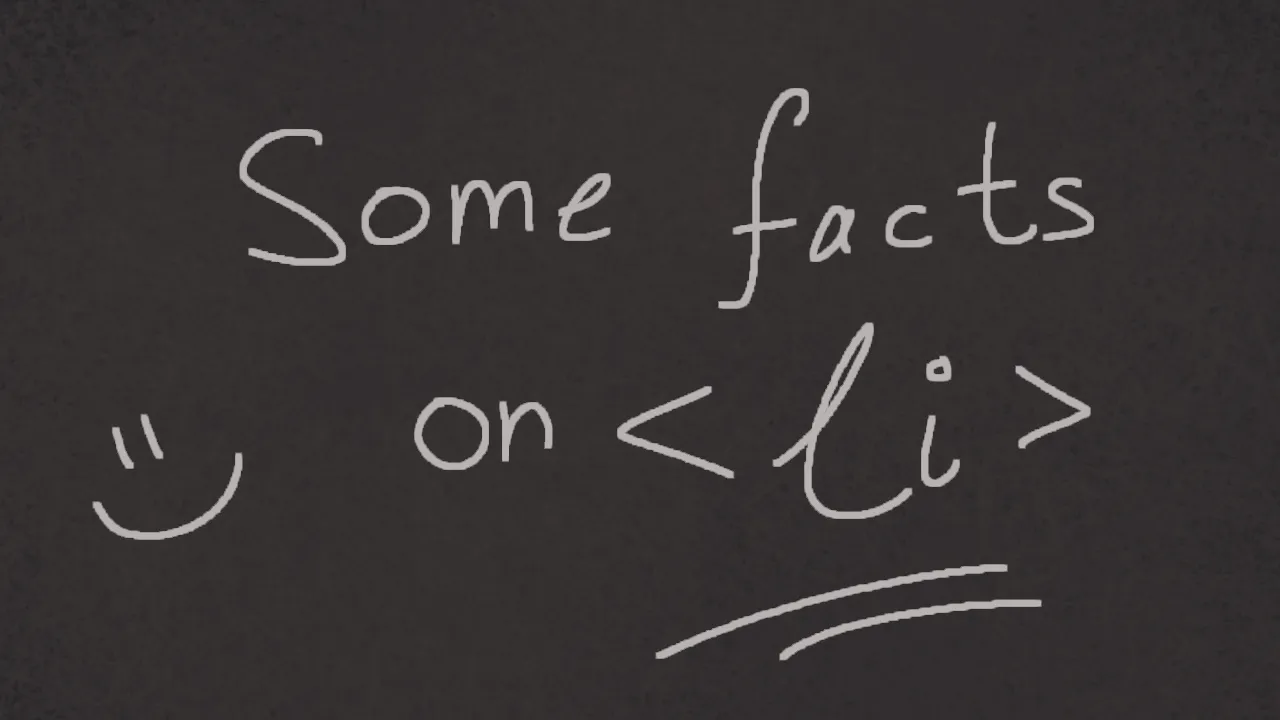 Some facts
on <li>